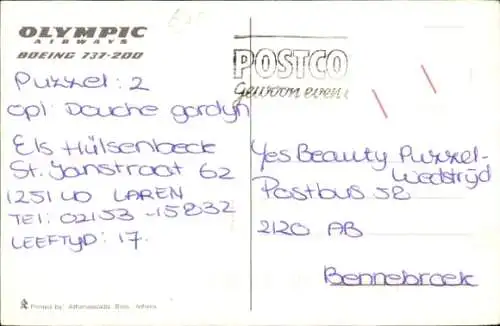 OLYMPIC
AIRWAYS
BOEING 737-200
POSTCO
Gewoon even
Puzzel: 2
opl: Douche gordyn
Els Hülsenbeck
St. Janstraat 62
1251 LD LAREN
Tel: 02153-15832
LEEFTYD: 17.
Yes Beauty Puzzel-
Wedstryd
Postbus 58
2120 AB
Bennebroek
Printed by: Bros. Athens